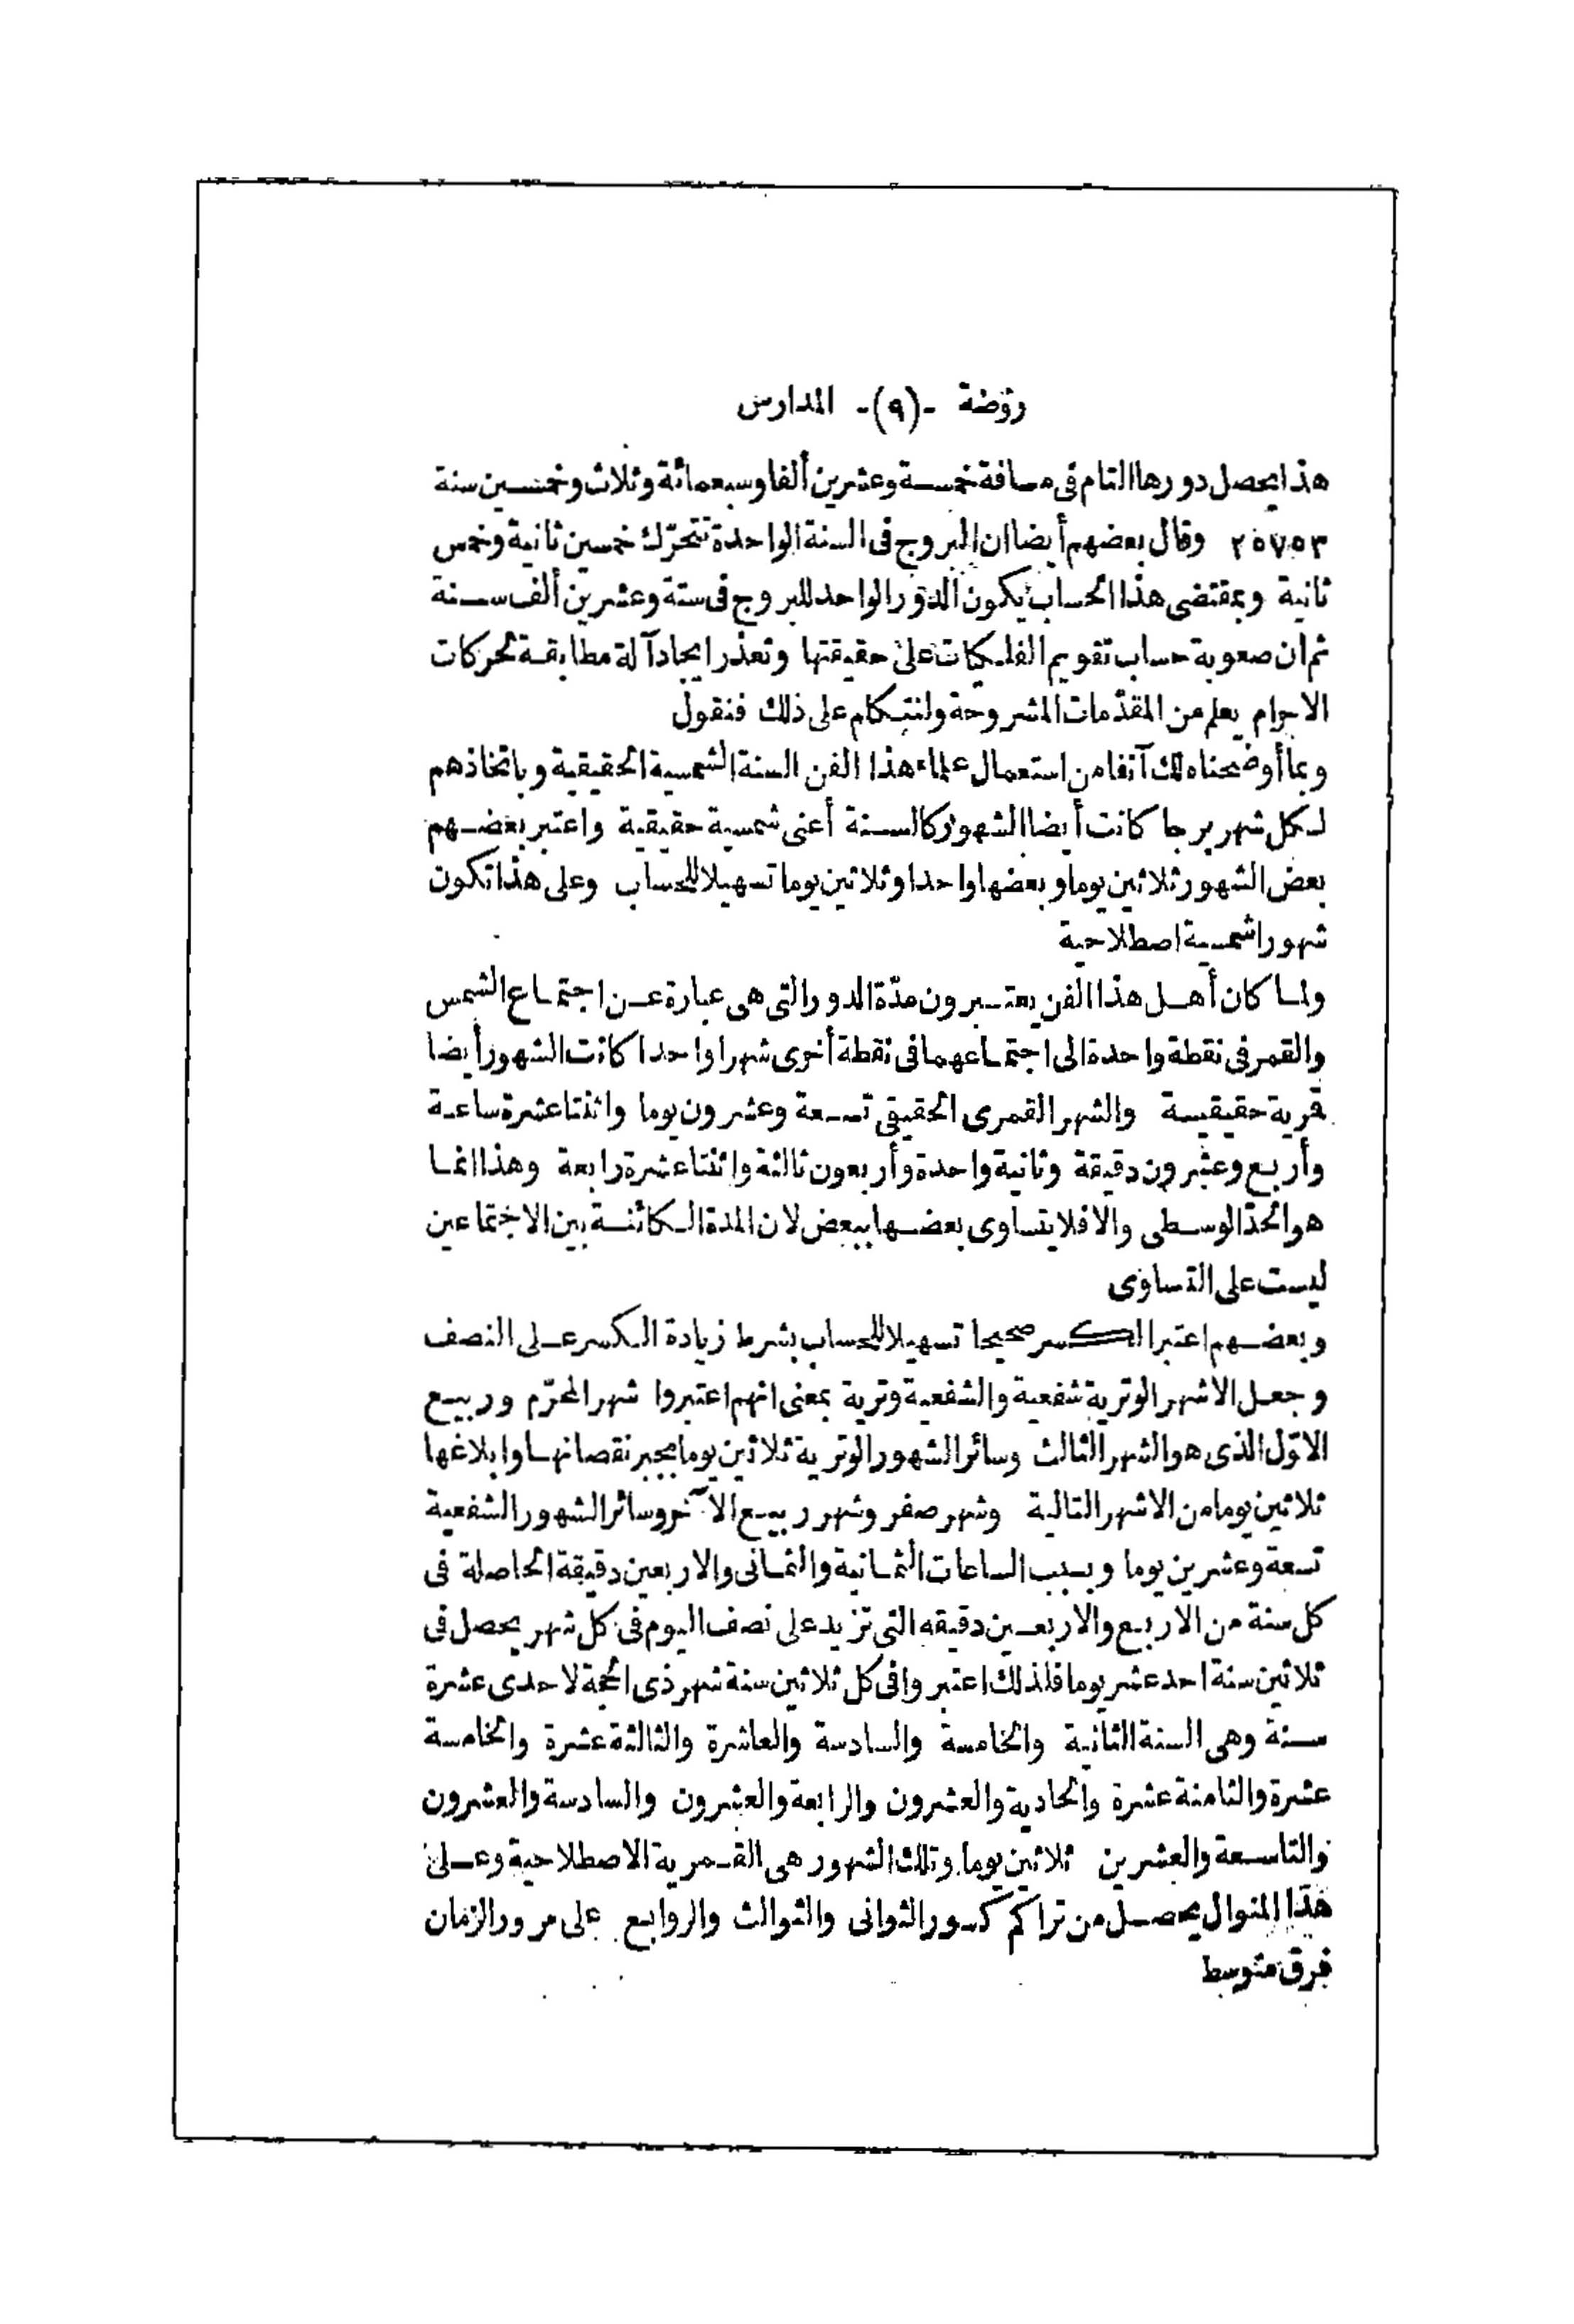 روضة -(٩)- المدارس
هذا يحصل دورها التام فى مسافة خمسة وعشرين ألفا وسبعمائة وثلاث وخمسين سنة
٢٥٧٥٣ وقال بعضهم أيضا ان البروج فى السنة الواحدة تتحرّك خمسين ثانية وخمس
ثانية وبمقتضى هذا الحساب يكون الدور الواحد للبروج فى ستة وعشرين ألف سنة
ثم ان صعوبة حساب تقويم الفلكيات على حقيقتها وتعذر ايجاد آلة مطابقة لحركات
الاجرام يعلم من المقدّمات المشروحة ولنتكلم على ذلك فنقول
وبما أوضحناه لك آنفا من استعمال علماء هذا الفن السنة الشمسية الحقيقية وباتخاذهم
لكل شهر برجا كانت أيضا الشهور كالسنة أعنى شمسية حقيقية واعتبر بعضهم
بعض الشهور ثلاثين يوما وبعضها واحدا وثلاثين يوما تسهيلا للحساب وعلى هذا تكون
شهورا شمسية اصطلاحية
ولما كان أهل هذا الفن يعتبرون مدّة الدور التى هى عبارة عن اجتماع الشمس
والقمر فى نقطة واحدة الى اجتماعهما فى نقطة أخرى شهرا واحدا كانت الشهور أيضا
قمرية حقيقية والشهر القمرى الحقيقى تسعة وعشرون يوما واثنتا عشرة ساعة
وأربع وعشرون دقيقة وثانية واحدة وأربعون ثالثة واثنتا عشرة رابعة وهذا انما
هو الحدّ الوسطى والا فلا يتساوى بعضها ببعض لان المدة الكائنة بين الاجتماعين
ليست على التساوى
وبعضهم اعتبر الكسر صحيحا تسهيلا للحساب بشرط زيادة الكسر على النصف
وجعل الاشهر الوترية شفعية والشفعية وترية بمعنى انهم اعتبروا شهر المحرّم وربيع
الاوّل الذى هو الشهر الثالث وسائر الشهور الوترية ثلاثين يوما بجبر نقصانها وابلاغها
ثلاثين يوما من الاشهر التالية وشهر صفر وشهر ربيع الآخر وسائر الشهور الشفعية
تسعة وعشرين يوما وبسبب الساعات الثمانية والثمانى والاربعين دقيقة الحاصلة فى
كل سنة من الاربع والاربعين دقيقه التى تزيد على نصف اليوم فى كل شهر يحصل فى
ثلاثين سنة احد عشر يوما فلذلك اعتبروا فى كل ثلاثين سنة شهر ذى الحجة لاحدى عشرة
سنة وهى السنة الثانية والخامسة والسادسة والعاشرة والثالثة عشرة والخامسة
عشرة والثامنة عشرة والحادية والعشرون والرابعة والعشرون والسادسة والعشرون
والتاسعة والعشرين ثلاثين يوما وتلك الشهور هى القمرية الاصطلاحية وعلى
هذا المنوال يحصل من تراكم كسور الثوانى والثوالث والروابع على مرور الزمان
فرق متوسط